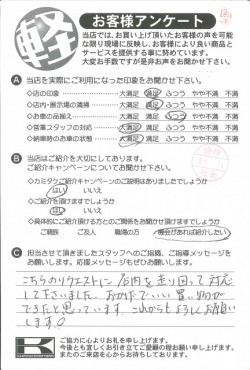 軽
お客様アンケート
当店では、お買い上げ頂いたお客様の声を可能
な限り現場に反映し、お客様により良い商品と
サービスを提供する事に努めています。
大変お手数ですが是非お声をお聞かせ下さい。
A 当店を実際にご利用になった印象をお聞かせ下さい。
◇店の印象 大満足 満足 ふつう やや不満 不満
◇店内・展示場の清掃 大満足 満足 ふつう やや不満 不満
◇お車の品揃え 大満足 満足 ふつう やや不満 不満
◇営業スタッフの対応 大満足 満足 ふつう やや不満 不満
◇納車時のお車の状態 大満足 満足 ふつう やや不満 不満
B 当店はご紹介を大切にしております。
ご紹介キャンペーンについてお聞かせ下さい。
◇カミタウンご紹介キャンペーンのご説明はありましたでしょうか
はい いいえ
◇ご紹介を頂けますでしょうか
はい いいえ
◇具体的にご紹介頂ける方とのご関係をお聞かせ頂けますでしょうか
ご親族 ご友人 職場の方 機会があれば紹介したい
C 担当させて頂きましたスタッフへのご指摘、ご指導メッセージを
お願いします。応援メッセージもぜひお願いします。
こちらのリクエストに店内を走り回って対応
して下さいました。おかげでいい買い物が
できたと思っています。これからもよろしくお願い
します。
K
ご協力に心よりお礼を申し上げます。
今後とも宜しくお引き立てご愛顧の程お願い申し上げます。
またのご来店を心からお待ちしております。